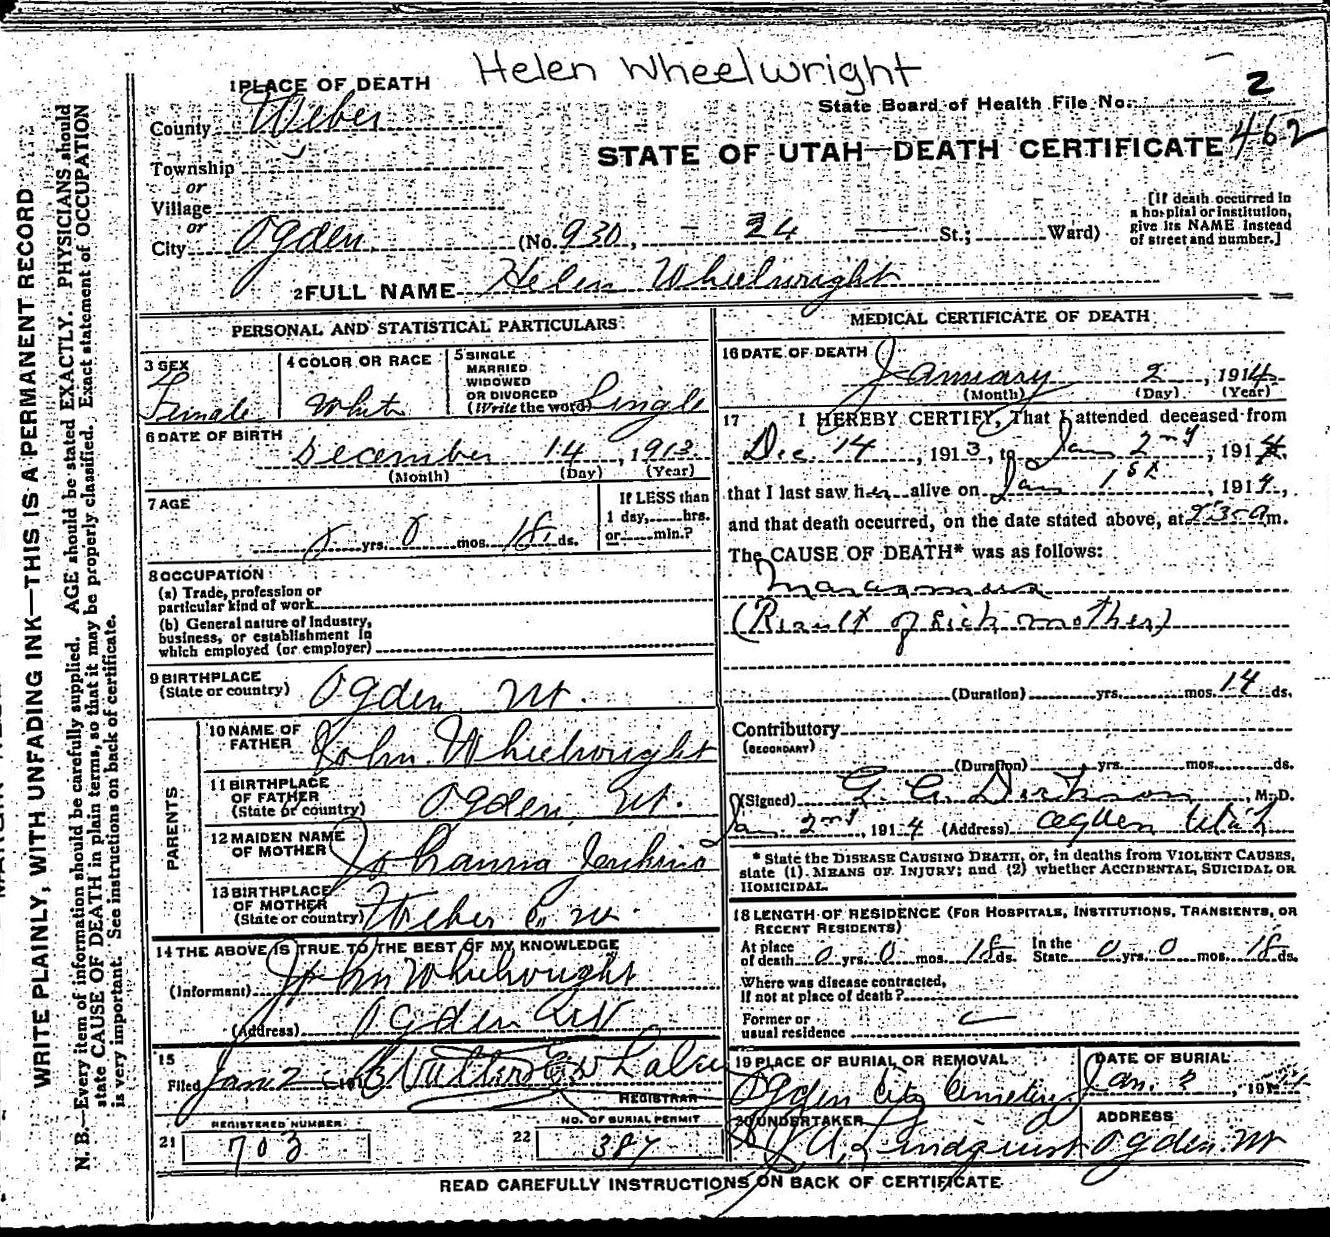 Helen Wheelwright
1 PLACE OF DEATH
County Weber
Township
or
Village
or
City Ogden (No. 930, 24 St.; Ward)
State Board of Health File No. 2
STATE OF UTAH—DEATH CERTIFICATE 462
[If death occurred in
a hospital or institution,
give its NAME instead
of street and number.]
2 FULL NAME Helen Wheelwright
PERSONAL AND STATISTICAL PARTICULARS
3 SEX
Female
4 COLOR OR RACE
White
5 SINGLE
MARRIED
WIDOWED
OR DIVORCED
(Write the word) Single
6 DATE OF BIRTH
December 14, 1913
(Month) (Day) (Year)
7 AGE
yrs. 0 mos. 18 ds.
If LESS than
1 day, hrs.
or min.?
8 OCCUPATION
(a) Trade, profession or
particular kind of work
(b) General nature of Industry,
business, or establishment in
which employed (or employer)
9 BIRTHPLACE
(State or country) Ogden Ut.
PARENTS
10 NAME OF
FATHER John Wheelwright
11 BIRTHPLACE
OF FATHER
(State or country) Ogden, Ut.
12 MAIDEN NAME
OF MOTHER Johanna Jenkins
13 BIRTHPLACE
OF MOTHER
(State or country) Weber Co Ut.
14 THE ABOVE IS TRUE TO THE BEST OF MY KNOWLEDGE
(Informant) John Wheelwright
(Address) Ogden Ut
15
Filed Jan 2 191
REGISTRAR
REGISTERED NUMBER
21 703
NO. OF BURIAL PERMIT
22 387
MEDICAL CERTIFICATE OF DEATH
16 DATE OF DEATH
January 2, 1914
(Month) (Day) (Year)
17 I HEREBY CERTIFY, That I attended deceased from
Dec. 14, 1913, to Jan 2nd, 1914
that I last saw her alive on Jan 1st, 1914,
and that death occurred, on the date stated above, at m.
The CAUSE OF DEATH* was as follows:
Marasmus
(Result of sick mother)
(Duration) yrs. mos. 14 ds.
Contributory
(SECONDARY)
(Duration) yrs. mos. ds.
(Signed) M. D.
Jan 2nd, 1914 (Address) Ogden Utah
* State the DISEASE CAUSING DEATH, or, in deaths from VIOLENT CAUSES,
state (1) MEANS OF INJURY; and (2) whether ACCIDENTAL, SUICIDAL OR
HOMICIDAL.
18 LENGTH OF RESIDENCE (FOR HOSPITALS, INSTITUTIONS, TRANSIENTS, OR
RECENT RESIDENTS)
At place
of death 0 yrs. 0 mos. 18 ds. In the
State 0 yrs. 0 mos. 18 ds.
Where was disease contracted,
If not at place of death?
Former or
usual residence
19 PLACE OF BURIAL OR REMOVAL
Ogden City Cemetery
DATE OF BURIAL
Jan. 3, 191
20 UNDERTAKER
Lindquist
ADDRESS
Ogden Ut
READ CAREFULLY INSTRUCTIONS ON BACK OF CERTIFICATE
WRITE PLAINLY, WITH UNFADING INK—THIS IS A PERMANENT RECORD
N. B.—Every item of information should be carefully supplied. AGE should be stated EXACTLY. PHYSICIANS should
state CAUSE OF DEATH in plain terms, so that it may be properly classified. Exact statement of OCCUPATION
is very important. See instructions on back of certificate.